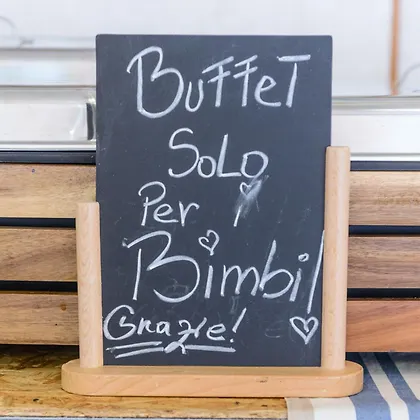 BuFFeT
SoLo
Per i
Bimbi!
Grazie!